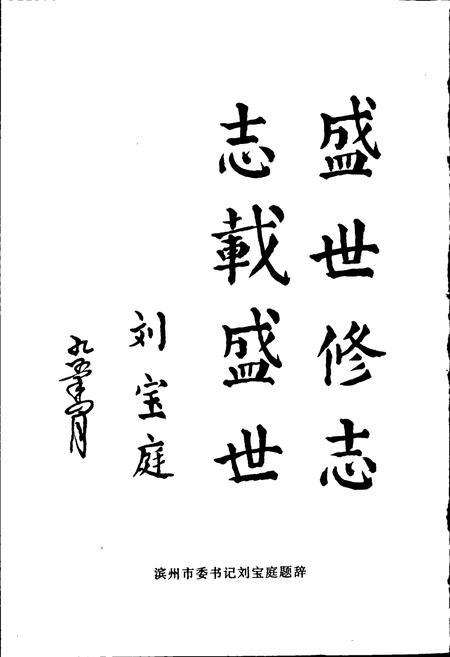 盛世修志
志載盛世
刘宝庭
九五年四月
滨州市委书记刘宝庭题辞